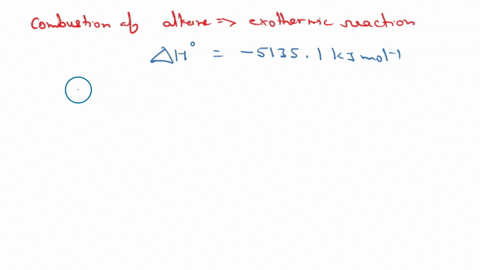 Combustion of alkene => exothermic reaction
△H° = -5135.1 kJ mol-1